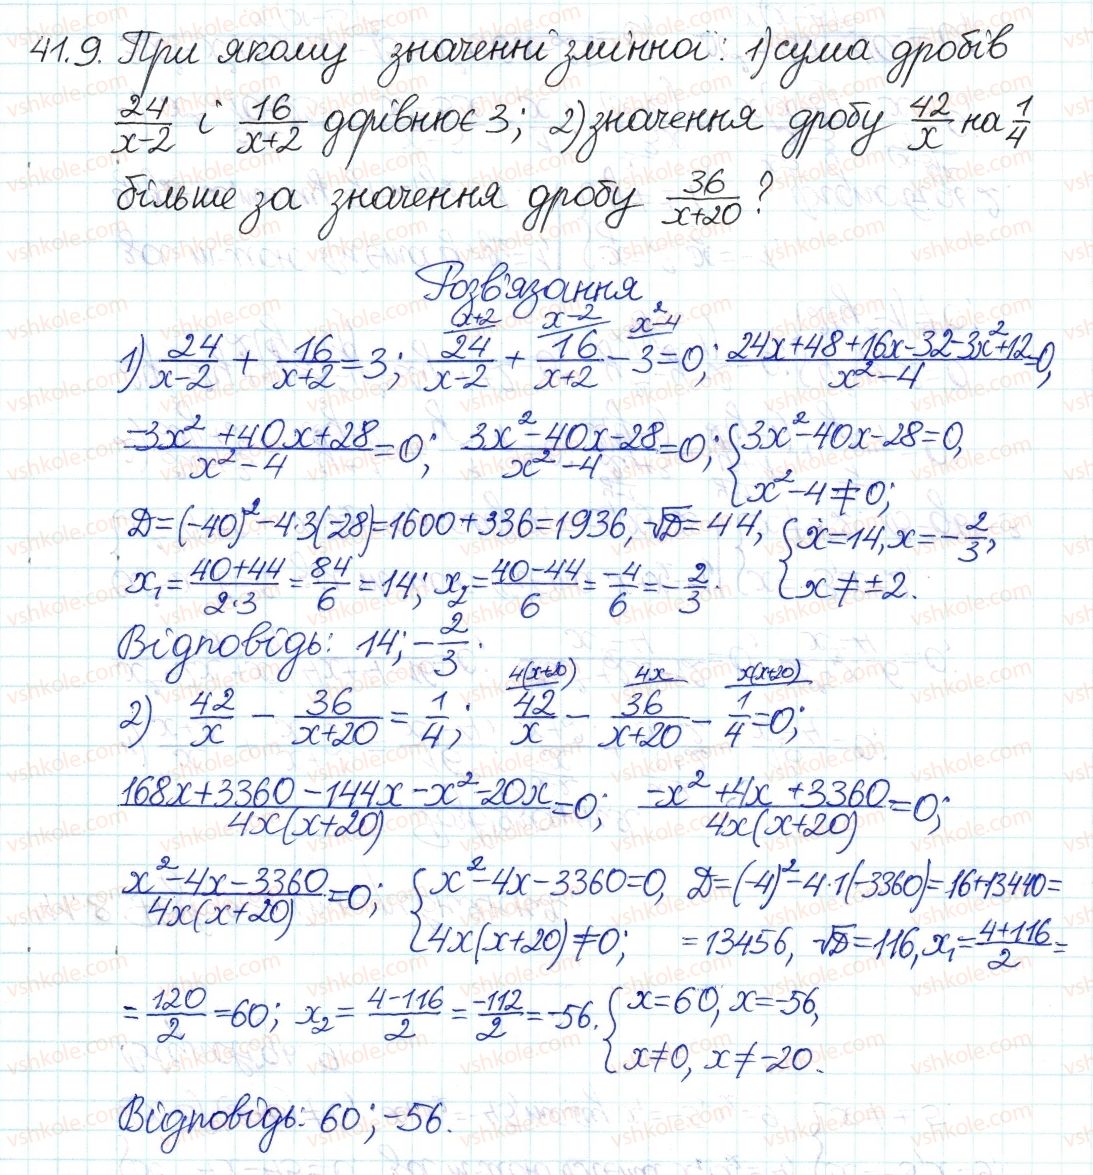 41.9. При якому значенні змінної: 1) сума дробів
24/(x-2) і 16/(x+2) дорівнює 3; 2) значення дробу 42/x на 1/4
більше за значення дробу 36/(x+20)?
Розв'язання
1) 24/(x-2) + 16/(x+2) = 3; (x+2 24/(x-2) + x-2 16/(x+2) - x²-4 3 = 0; (24x+48+16x-32-3x²+12)/(x²-4) = 0,
(-3x²+40x+28)/(x²-4) = 0; (3x²-40x-28)/(x²-4) = 0; { 3x²-40x-28=0,
x²-4≠0;
D=(-40)²-4·3(-28)=1600+336=1936, √D=44, { x=14, x=-2/3,
x₁ = (40+44)/(2·3) = 84/6 = 14; x₂ = (40-44)/6 = -4/6 = -2/3. x≠±2.
Відповідь: 14; -2/3.
2) 42/x - 36/(x+20) = 1/4; 4(x+20) 42/x - 4x 36/(x+20) - x(x+20) 1/4 = 0;
(168x+3360-144x-x²-20x)/(4x(x+20)) = 0; (-x²+4x+3360)/(4x(x+20)) = 0;
(x²-4x-3360)/(4x(x+20)) = 0; { x²-4x-3360=0, D=(-4)²-4·1(-3360)=16+13440=
4x(x+20)≠0; =13456, √D=116, x₁ = (4+116)/2 =
= 120/2 = 60; x₂ = (4-116)/2 = -112/2 = -56. { x=60, x=-56,
x≠0, x≠-20.
Відповідь: 60; -56.